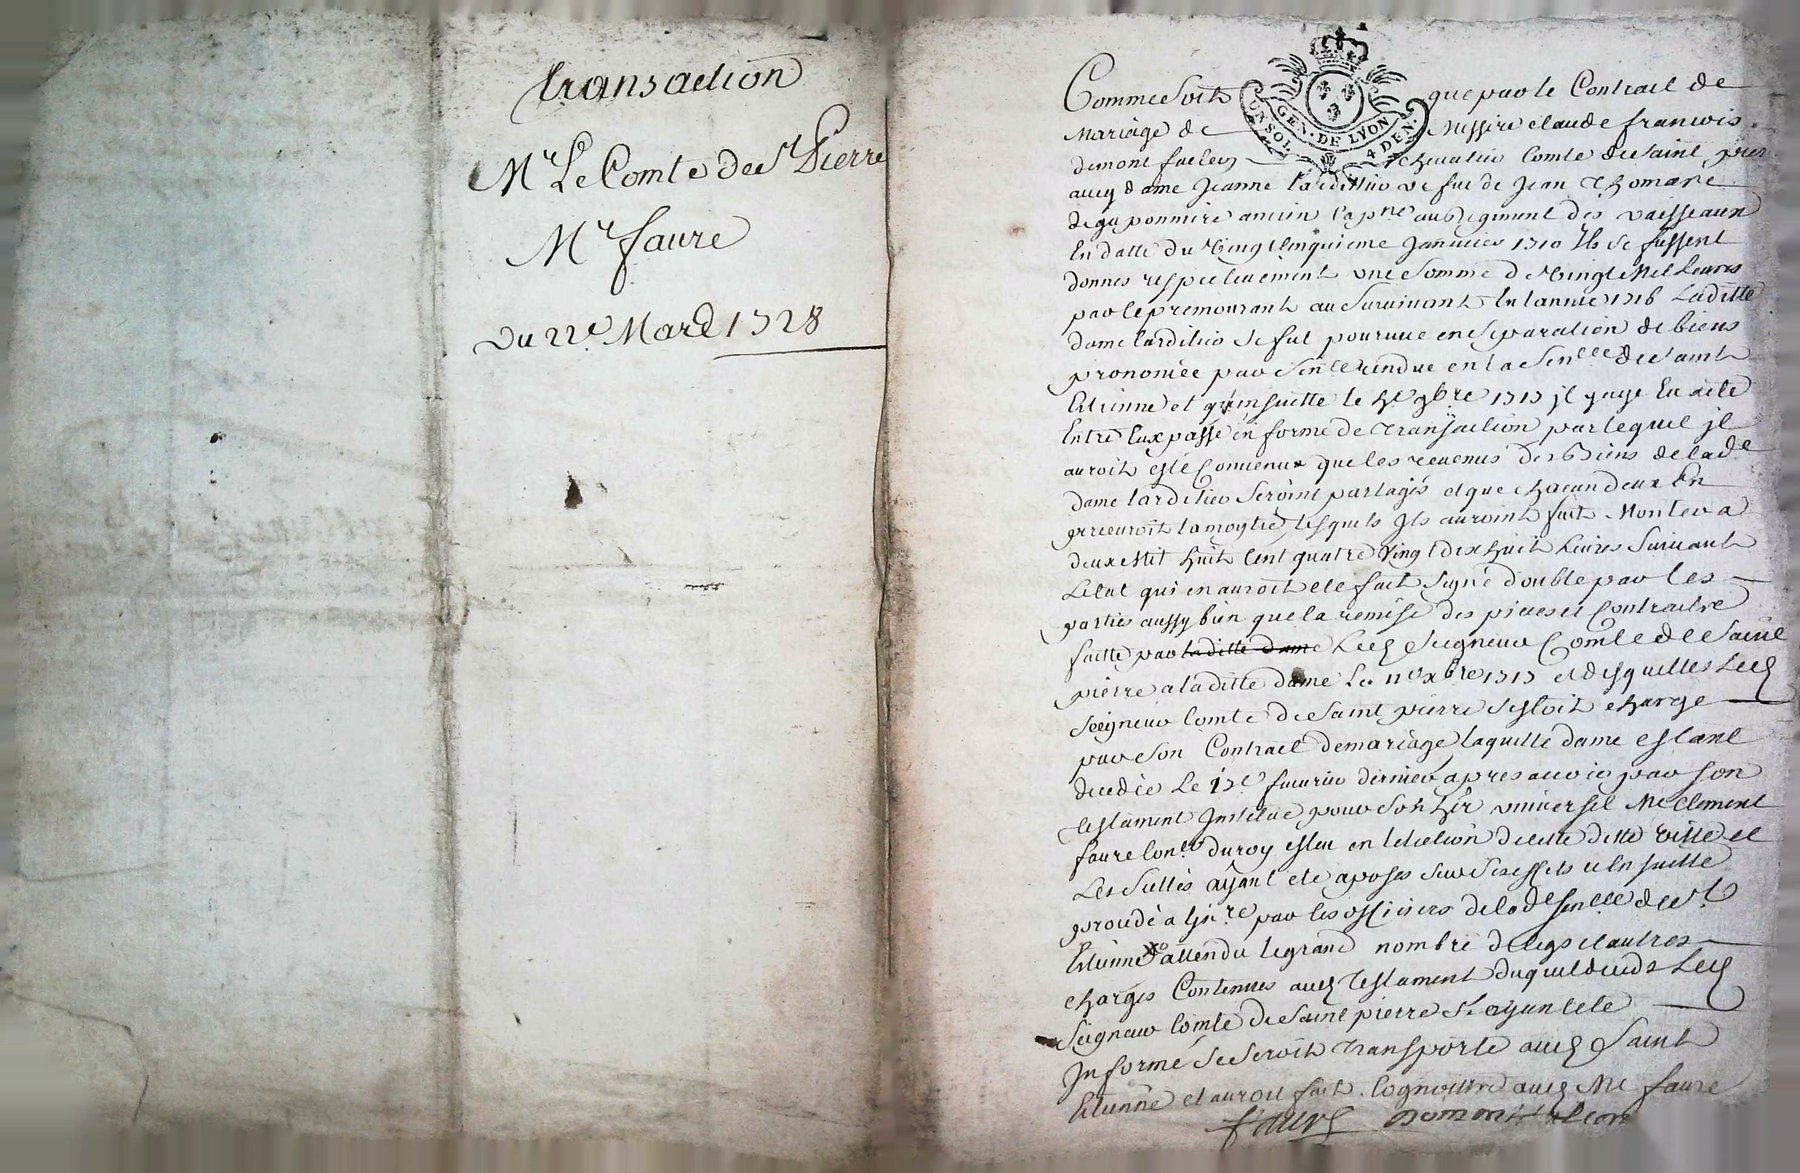 transaction
Mr Le Comte de St Pierre
Mr faure
Du 22e Mard 1728
GEN. DE LYON
4 DEN.
Comme soit que par le Contract de
Mariage de Messire claude francois
chevalier Comte de saint pierre
avecq dame Jeanne de Jean
ancien cap ne au Regiment des vaisseaux
En datte du vingt cinquieme Janvier 1710 Ils se fussent
donnes respectivement une somme de vingt Mil Livres
par le premourant au survivant En lannee 1716 Laditte
dame se fut pourvue en separation de biens
prononcée par sentce rendue en la Senlce de saint
Etienne et qu'ensuitte le 9bre 1717 jl y aye Eu acte
Entre Eux passé en forme de transaction par lequel jl
auroit esté Convenu que les revenus des Biens de lade
dame seroint partagés et que chacun deux En
la moytie, lesquels Ils auroint fait Monter a
deux Mil huit Cent quatre vingt dix huit Livres suivant
Letat qui en auroit ete fait signé double par les
parties aussy bien que la remise des pieces et Contracts
faitte par laditte dame Led Seigneur Comte de Saint
pierre a laditte dame Le 11e xbre 1717 et desquelles Led
Seigneur Comte de Saint pierre sestoit charge
par son Contract de mariage, laquelle dame estant
decedée Le 17e fevrier dernier apres avoir par son
testament Institué pour son her universel Me Clement
faure Conser du roy esleu en lelection de cette ditte ville et
Les scellés ayant ete aposes sur ses effets et en suitte
procedé a par les officiers de lade Senlce de St
Etienne attendu le grand nombre de legs et autres
charges Contenues aud Testament duquel deceds Led
Seigneur Comte de Saint pierre ayant ete
Informé se seroit transporté aud Saint
Etienne et auroit fait Cognoittre aud Me faure
faure